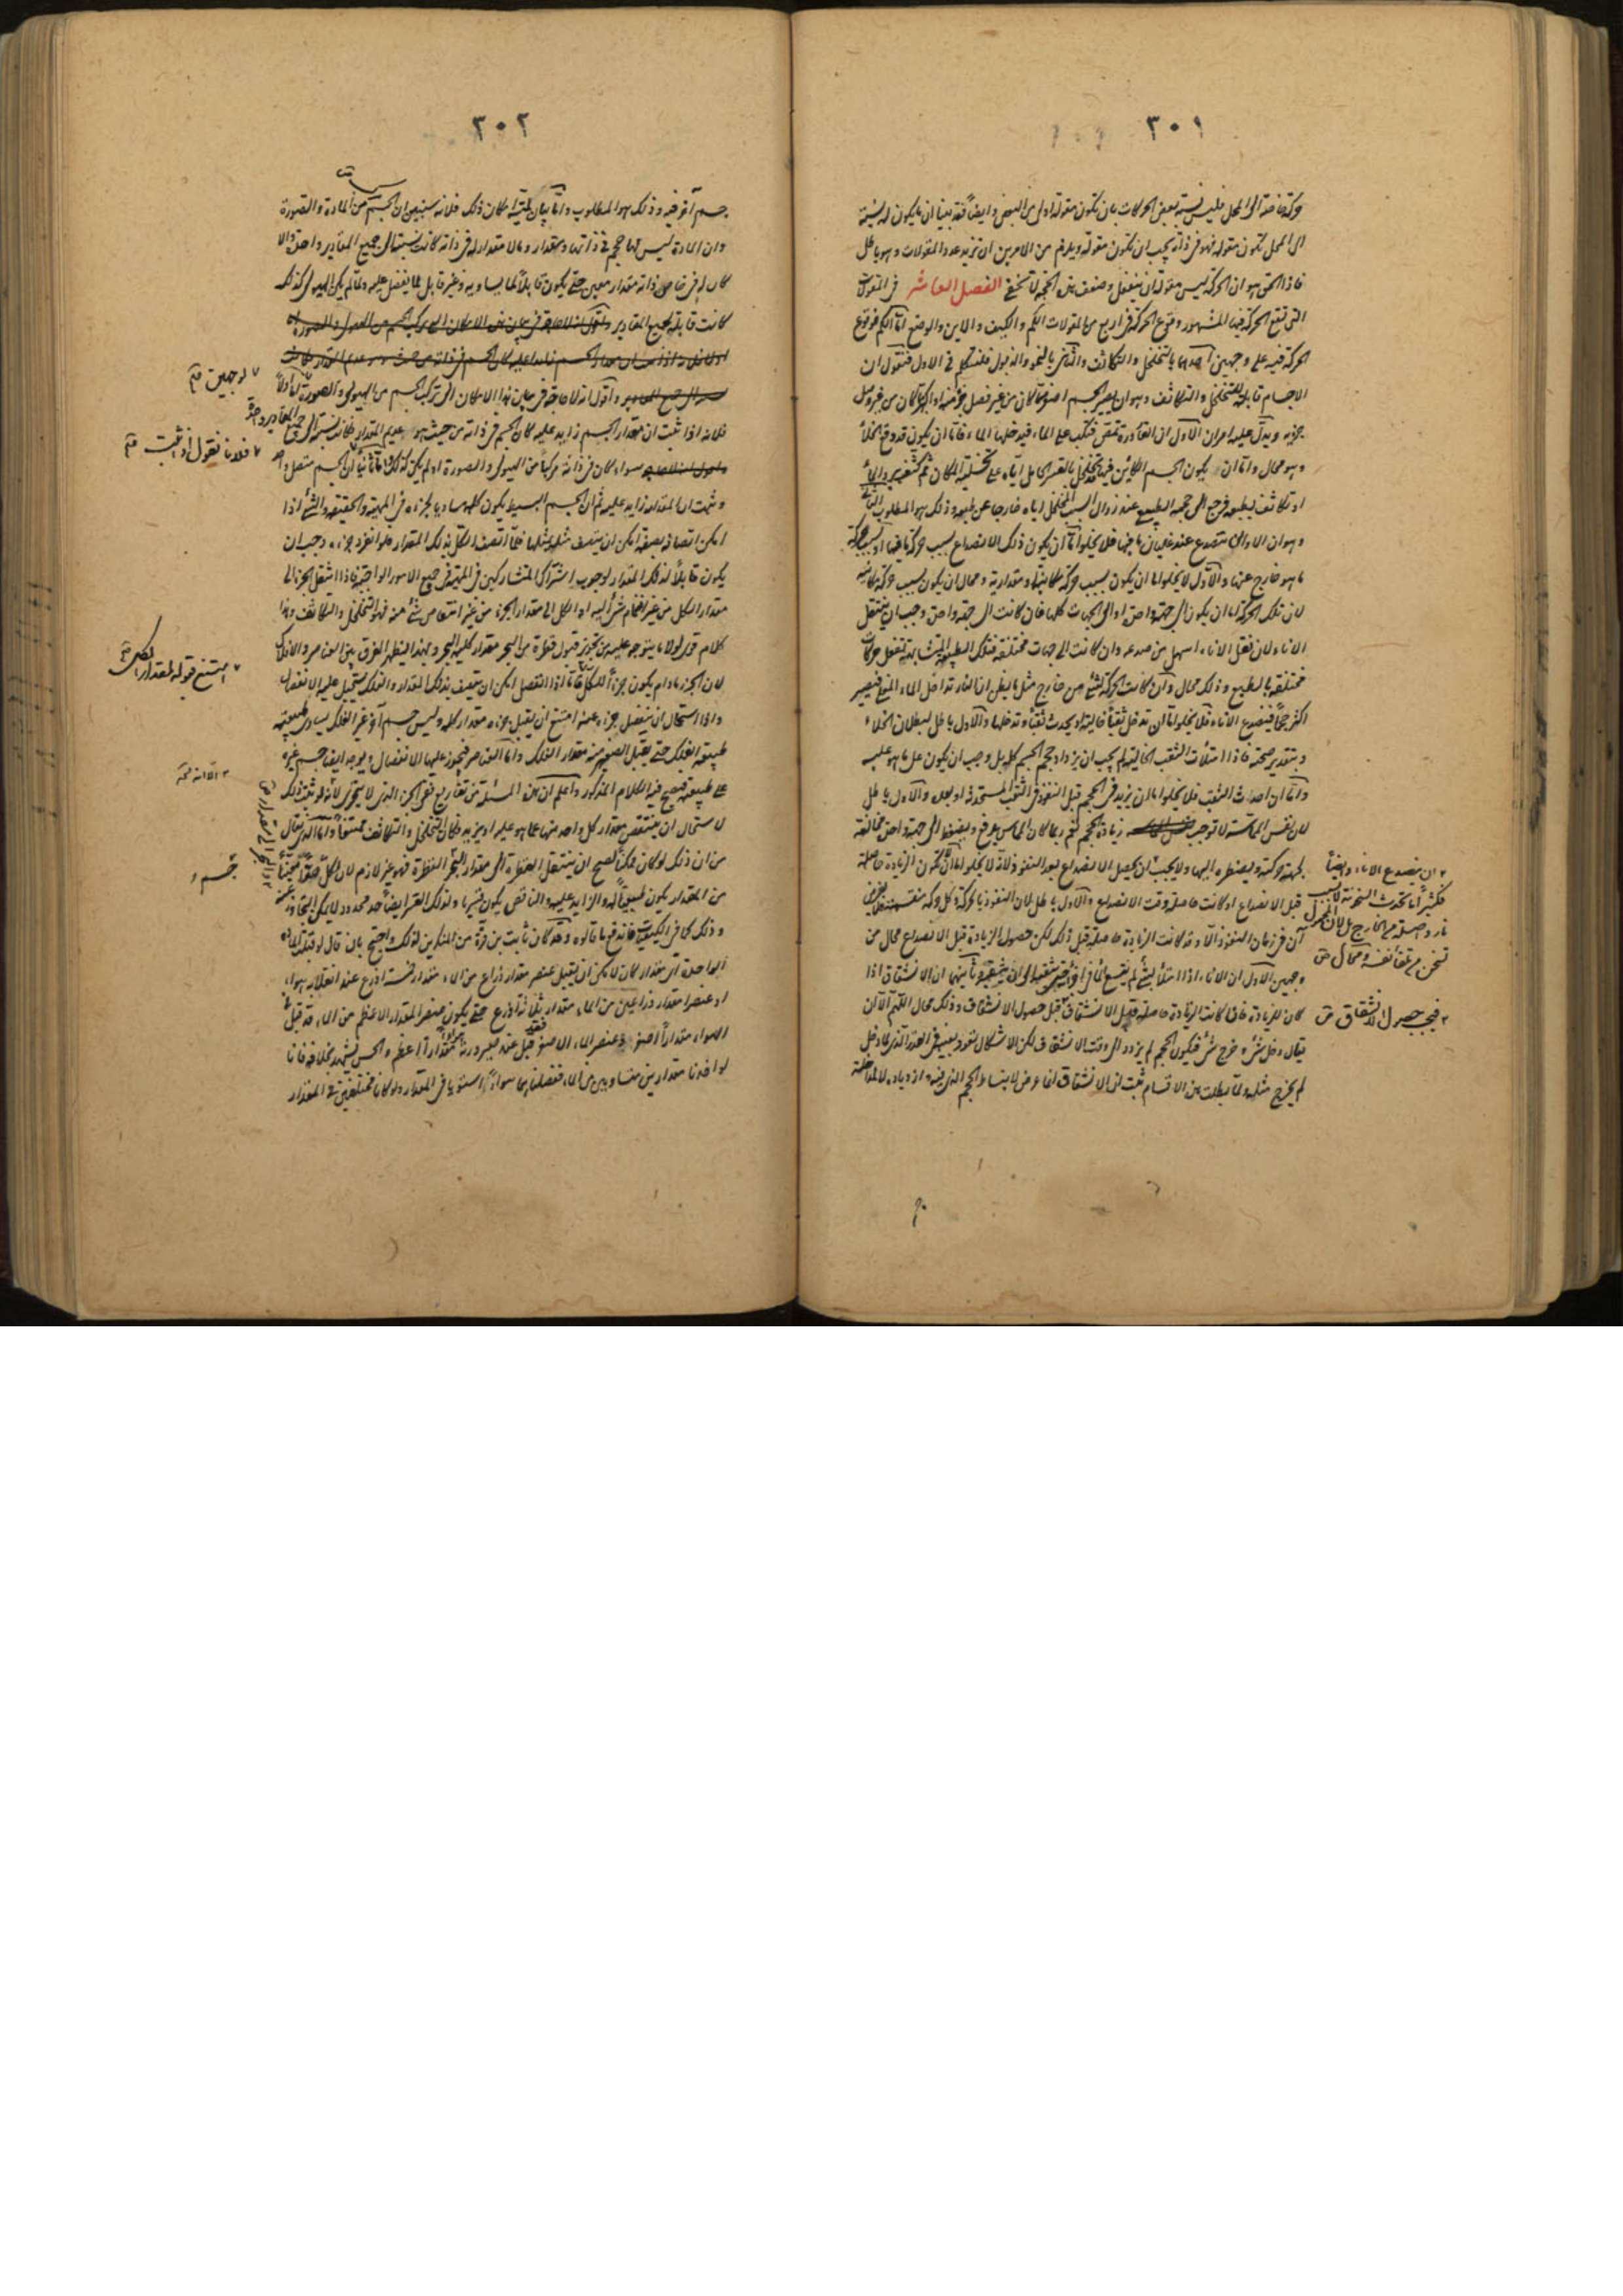 ٣٠١
حركة خاصة الى المحل فليس نسبة بعض الحركات بان تكون مقولة اولى من البعض وايضا فقد بينا ان ما يكون له نسبة
الى المحل تكون مقولة فهو فى ذاته يجب ان تكون مقولة ويلزم من الامرين ان تزيد عدد المقولات وهو باطل
فاذا الحق هو ان الحركة ليس مقولة ان ينفعل وضعف هذه الحجة لا تخفى الفصل العاشر فى المقولات
التى تقع الحركة فيها المشهور وقوع الحركة فى اربع من المقولات الكم والكيف والاين والوضع اما الكم فوقوع
الحركة فيه على وجهين احدهما بالتخلخل والتكاثف والثانى بالنمو والذبول فلنتكلم فى الاول فنقول ان
الاجسام قابلة للتخلخل والتكاثف وهو ان يصير الجسم اصغر مما كان من غير فصل جزء منه او اكبر مما كان من غير وصل
جزء به ويدل عليه امران الاول ان القارورة تمص فتكب على الماء فيدخلها الماء فاما ان يكون قد وقع الخلأ
وهو محال واما ان يكون الجسم الكائن فيها تخلخل بالقسر الحامل اياه على تخلية المكان ثم كثفه برد الماء
او تكاثف بطبعه فرجع الى حجمه الطبيعى عند زوال السبب المخلخل اياه خارجا عن طبعه وذلك هو المطلوب الثانى
وهو ان الاوانى تتصدع عند غليان ما فيها فلا يخلو اما ان يكون ذلك الانصداع بسبب حركة ما فيها او بسبب حركة
ما هو خارج عنها والاول لا يخلو اما ان يكون بسبب حركة مكانية او مقدارية ومحال ان يكون بسبب حركة مكانية
لان تلك الحركة اما ان يكون الى جهة واحدة او الى الجهات كلها فان كانت الى جهة واحدة وجب ان ينتقل
الاناء لان نقل الاناء اسهل من صدعه وان كانت الى جهات مختلفة فتلك الطبيعة المتشابهة تفعل حركات
مختلفة بالطبع وذلك محال وان كانت الحركة لشئ من خارج مثل ما يظن ان النار تداخل الماء المغلى فيصير
اكثر حجما فيصدع الاناء فلا يخلو اما ان تدخل ثقبا خالية او يحدث ثقبا وتدخلها والاول باطل لبطلان الخلاء
وبتقدير صحته فاذا امتلأت الثقب الخالية لم يجب ان يزداد حجم الجسم كله بل وجب ان يكون على ما هو عليه
واما ان احداث الثقب فلا يخلو اما ان يزيد فى الحجم قبل النفوذ فى الثقب المستحدثة او بعده والاول باطل
لان نفس المماسة لا توجب زيادة الحجم نعم ربما كان المماس يدفع ويضغط الى جهة واحدة مخالفة
لجهة حركته وليضطره اليها ولا يجب ان يحصل الانصداع بعد النفوذ لانه لا يخلو اما ان تكون الزيادة حاصلة
قبل الانصداع او كانت حاصلة وقت الانصداع والاول باطل لان النفوذ بالحركة وكل حركة منقسمة يفرض
آن فى زمان النفوذ الا وقد كانت الزيادة حاصلة قبل ذلك لكن حصول الزيادة قبل الانصداع محال من
وجهين الاول ان الاناء اذا امتلأ بشئ لم يتسع لما فى اخر الى ان ينشق وثانيهما ان الانشقاق اذا
كان للزيادة فاذا كانت الزيادة حاصلة قبل الانشقاق فيجب حصول الانشقاق وذلك محال اللهم الا ان
يقال دخل شئ وخرج شئ فيكون الحجم لم يزدد الى وقت الانشقاق لكن الاشكال يعود بعينه فى القدر الذى كما دخل
لم يخرج مثله ولما بطلت هذه الاقسام ثبت ان الانشقاق انما عرض لانبساط الحجم الذى فيه وازدياده لا لمداخلة
ان ينصدع الاناء وايضا
فكثيرا ما تحدث السخونة لا بسبب
نار واصلة من الخارج بل لان المحرك
تسخن من تلقاء نفسه ومحال
فيجب حصول الانشقاق
٣٠٢
جسم آخر فيه وذلك هو المطلوب واما بيان لمية امكان ذلك فلانه سنبين ان الجسم مركب من المادة والصورة
وان المادة ليس لها حجم فى ذاتها ومقدار وما لا مقدار له فى ذاته كانت نسبته الى جميع المقادير واحدة والا
كان له فى خاص ذاته مقدار معين حتى يكون قابلا لما يساويه وغير قابل لما يفضل عليه ولما لم يكن الهيولى كذلك
كانت قابلة لجميع المقادير
واقول انه لا حاجة فى بيان هذا الامكان الى تركب الجسم من الهيولى والصورة اما اولا
فلانه اذا ثبت ان مقدار الجسم زايد عليه كان الجسم فى ذاته من حيث هو عديم المقدار فكانت نسبته الى جميع المقادير واحدة
سواء كان فى ذاته مركبا من الهيولى والصورة او لم يكن كذلك واما ثانيا ان الجسم متصل واحد
وثبت ان المقدار زايد عليه ثم ان الجسم البسيط يكون كله مساويا لجزئه فى المهية والحقيقة والشئ اذا
امكن اتصافه بصفة امكن ان يتصف مثله بمثلها فلما اتصف الكل بذلك المقدار فلو انفرد جزءه وجب ان
يكون قابلا لذلك المقدار لوجوب اشتراك المتشاركين فى المهية فى جميع الامور الواجبة فاذا انتقل الجزء الى
مقدار الكل من غير انضمام شئ اليه او الكل الى مقدار الجزء من غير انتقاص شئ منه فهو التخلخل والتكاثف وهذا
كلام قوى لولا ما يتوجه عليه من تجويز قبول قطرة من البحر مقدار كلية البحر وبهذا يظهر الفرق بين العناصر والافلاك
لان الجزء ما دام يكون جزءا للكل فاذا انفصل امكن ان يتصف بذلك المقدار والفلك يستحيل عليه الانفصال
واذا استحال ان ينفصل جزءه عنه امتنع ان يقبل جزءه مقدار كله وليس جسم آخر غير الفلك يساوى طبيعته
طبيعة الفلك حتى يقبل الصغير منه مقدار الفلك واما العناصر فيجوز عليها الانفصال ويوجد ايضا جسم غيره
على طبيعته فيصح فيه الكلام المذكور واعلم ان هذه المسئلة من تفاريع نفى الجزء الذى لا يتجزى لانه لو ثبت ذلك
لاستحال ان ينتقص مقدار كل واحد منها عما هو عليه او يزيد فكان التخلخل والتكاثف ممتنعا واما الذى يقال
من ان ذلك لو كان ممكنا لصح ان ينتقل القطرة الى مقدار البحر فهو غير لازم لان لكل جسم حدا معينا
من المقدار يكون طبيعيا له والزايد عليه والناقص يكون قسريا ولذلك القسر ايضا حد محدود لا يمكن التجاوز عنه
وذلك كما فى الكيفية فاندفع ما قالوه وقد كان ثابت بن قرة من المنكرين لذلك واحتج بان قال لو قبلت المادة
الواحدة اى مقدار كان لامكن ان يقبل عنصر مقدار ذراع من الماء مقدار خمسة اذرع عند انقلابه هواء
او عنصر مقدار ذراعين من الماء مقدار ثلاثة اذرع حتى يكون عنصر المقدار الاعظم من الماء قد قبل فى
الهواء مقدارا اصغر وعنصر الماء الاصغر فقد قبل عند صيرورته هواء مقدارا اعظم والحس يشهد بخلافه فانا
لو اخذنا مقدارين متساويين من الماء فنقلناهما هواء استويا فى المقدار ولو كانا مختلفين فى المقدار
لوجهين
فلانا نقول اذ ثبت
امتنع قبوله لمقدار الكل
الا انه
جسم